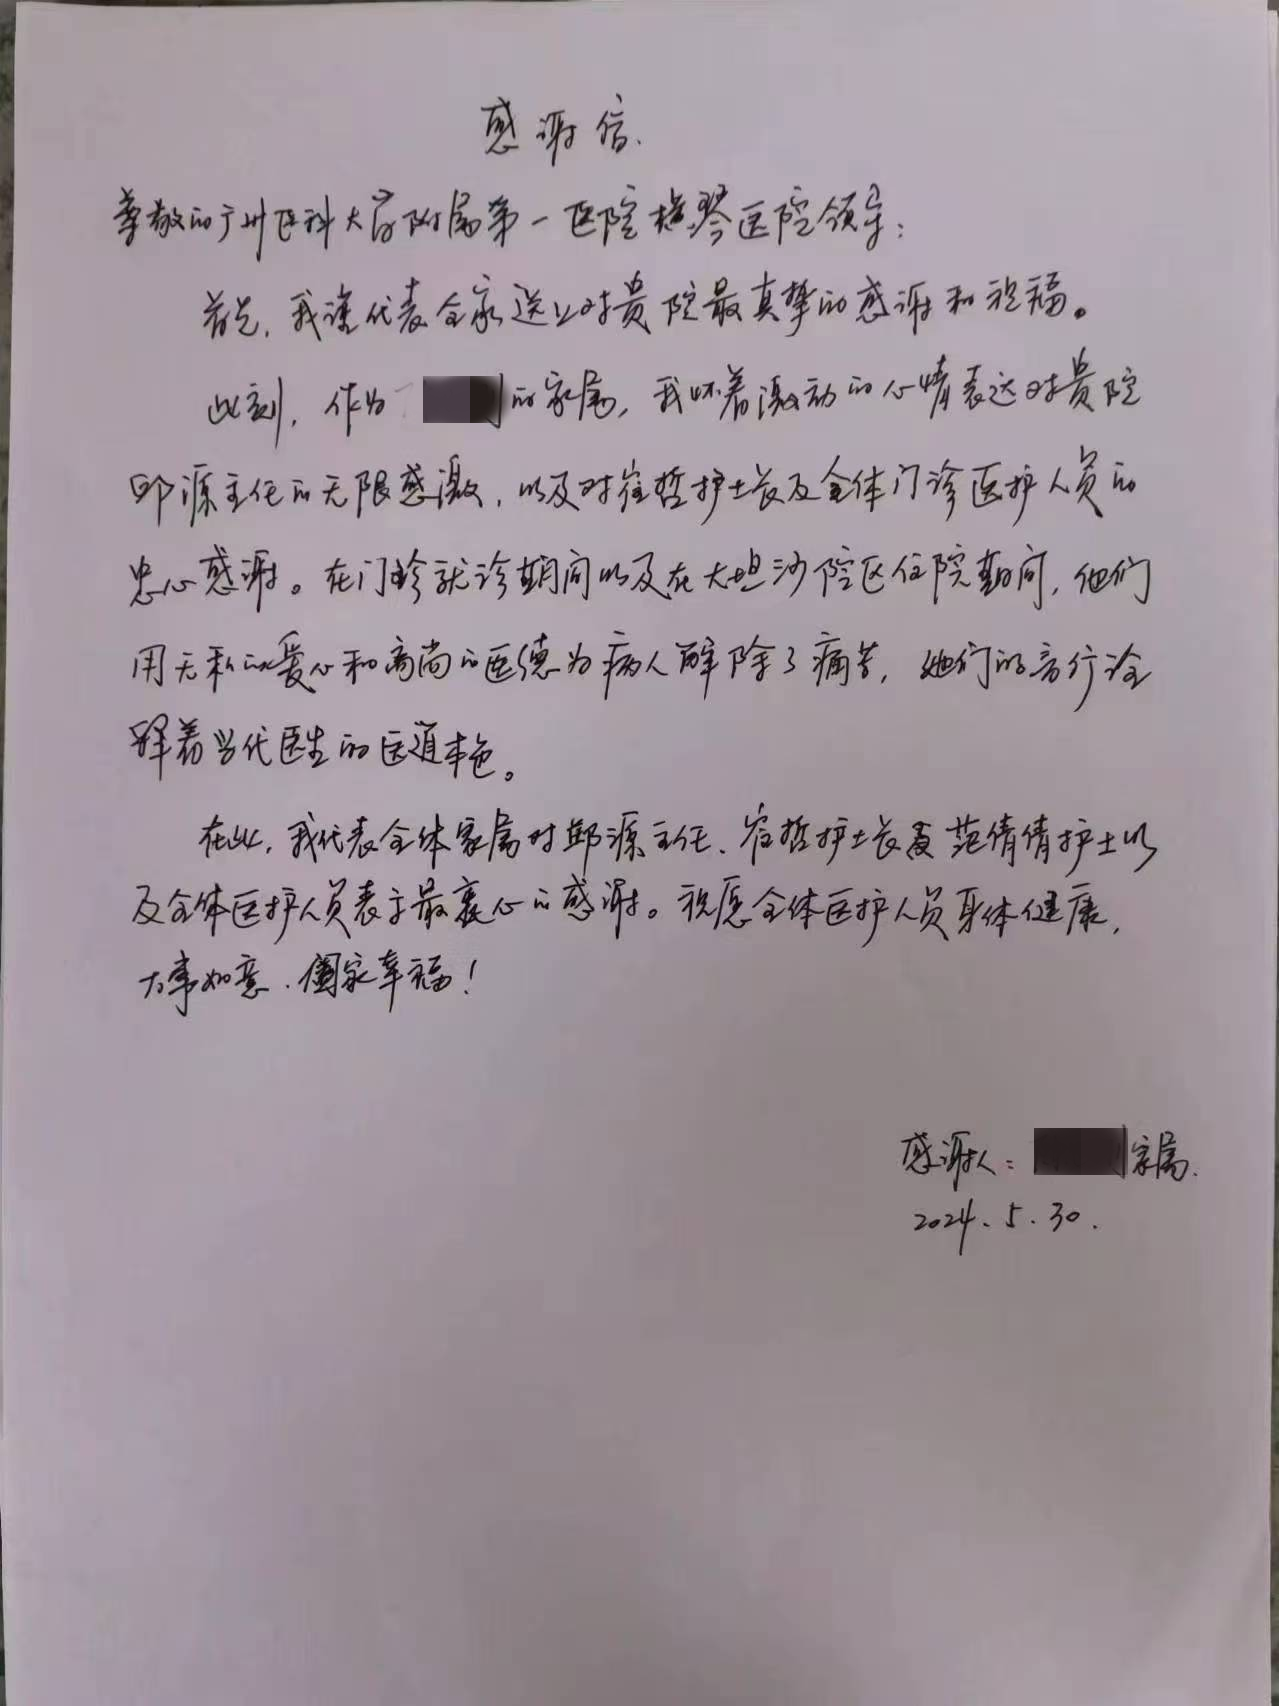 感谢信.
尊敬的广州医科大学附属第一医院横琴医院领导：
首先，我谨代表全家送上对贵院最真挚的感谢和祝福。
此刻，作为的家属，我怀着激动的心情表达对贵院
邱源主任的无限感激，以及对崔哲护士长及全体门诊医护人员的
忠心感谢。在门诊就诊期间以及在大坦沙院区住院期间，他们
用无私的爱心和高尚的医德为病人解除了痛苦，她们的言行诠
释着当代医生的医道本色。
在此，我代表全体家属对邱源主任、崔哲护士长及范倩倩护士以
及全体医护人员表示最衷心的感谢。祝愿全体医护人员身体健康，
万事如意、阖家幸福！
感谢人：家属.
2024.5.30.